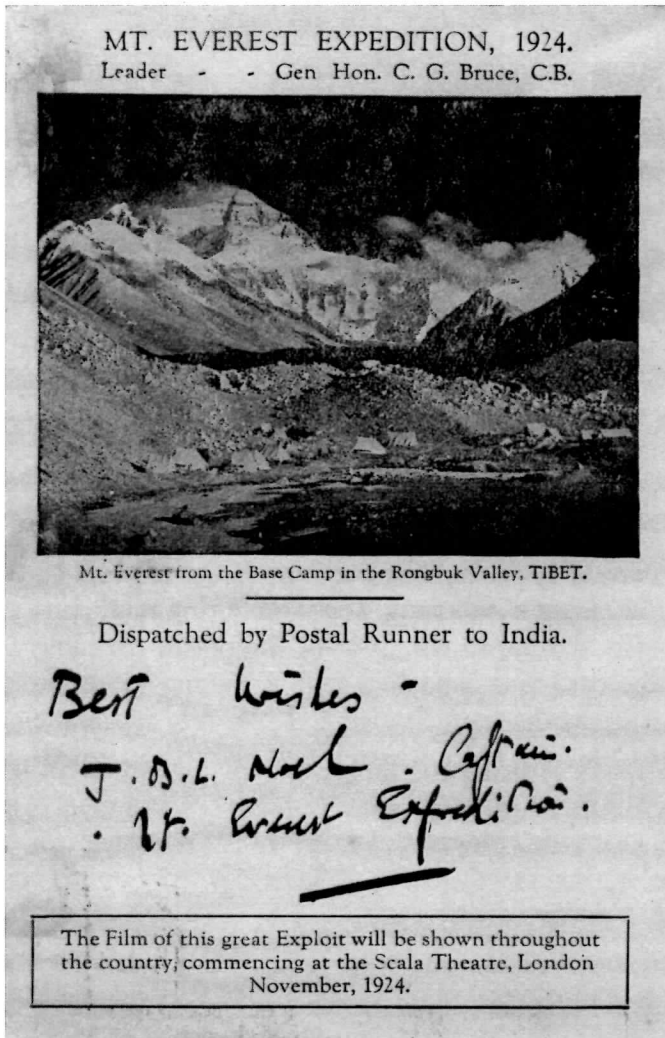 MT. EVEREST EXPEDITION, 1924.
Leader - - Gen Hon. C. G. Bruce, C.B.
Mt. Everest from the Base Camp in the Rongbuk Valley, TIBET.
Dispatched by Postal Runner to India.
Best Wishes -
J. B. L. Noel . Captain.
. Mt. Everest Expedition.
The Film of this great Exploit will be shown throughout
the country, commencing at the Scala Theatre, London
November, 1924.